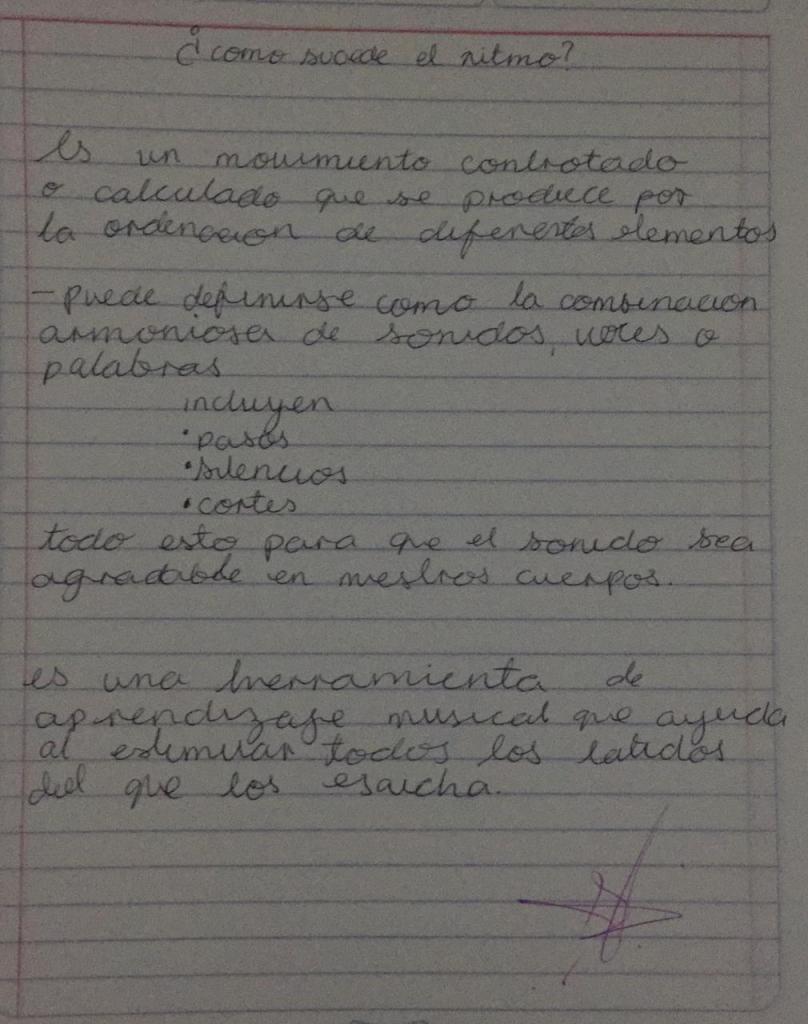 ¿como sucede el ritmo?
Es un movimiento controtado
o calculado que se produce por
la ordenacion de diferentes elementos
-puede definirse como la combinacion
armoniosa de sonidos, voces o
palabras
incluyen
•pasos
•silencios
•cortes
todo esto para que el sonido sea
agradable en nuestros cuerpos.
es una herramienta de
aprendizaje musical que ayuda
al estimular todos los latidos
del que los esaicha.